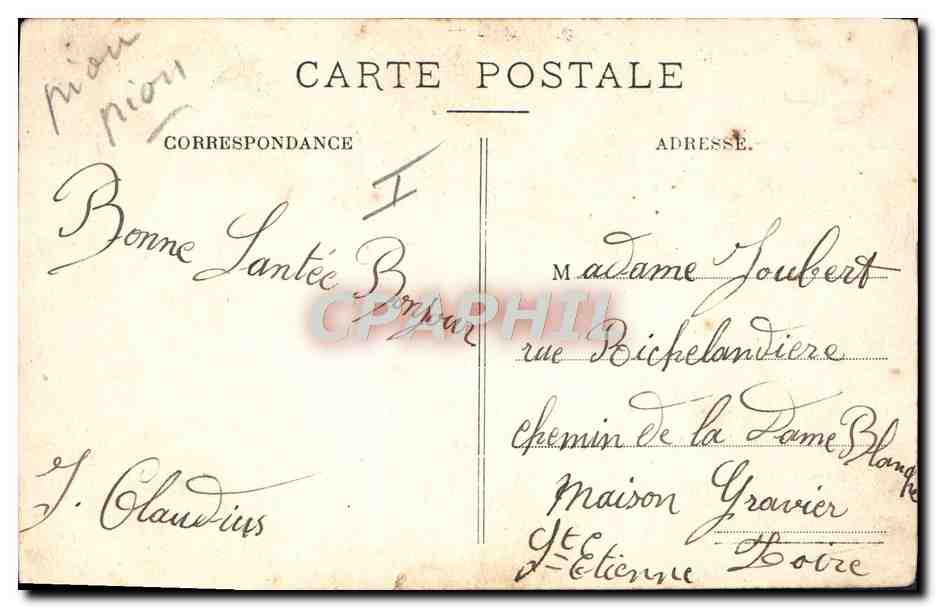 pion
pion
CARTE POSTALE
CORRESPONDANCE
ADRESSE.
I
Bonne Santée Bonjour
J. Claudius
Madame Joubert
rue Richelandiere
chemin de la Dame Blanche
maison Gravier
St Etienne Loire
CPAPHIL